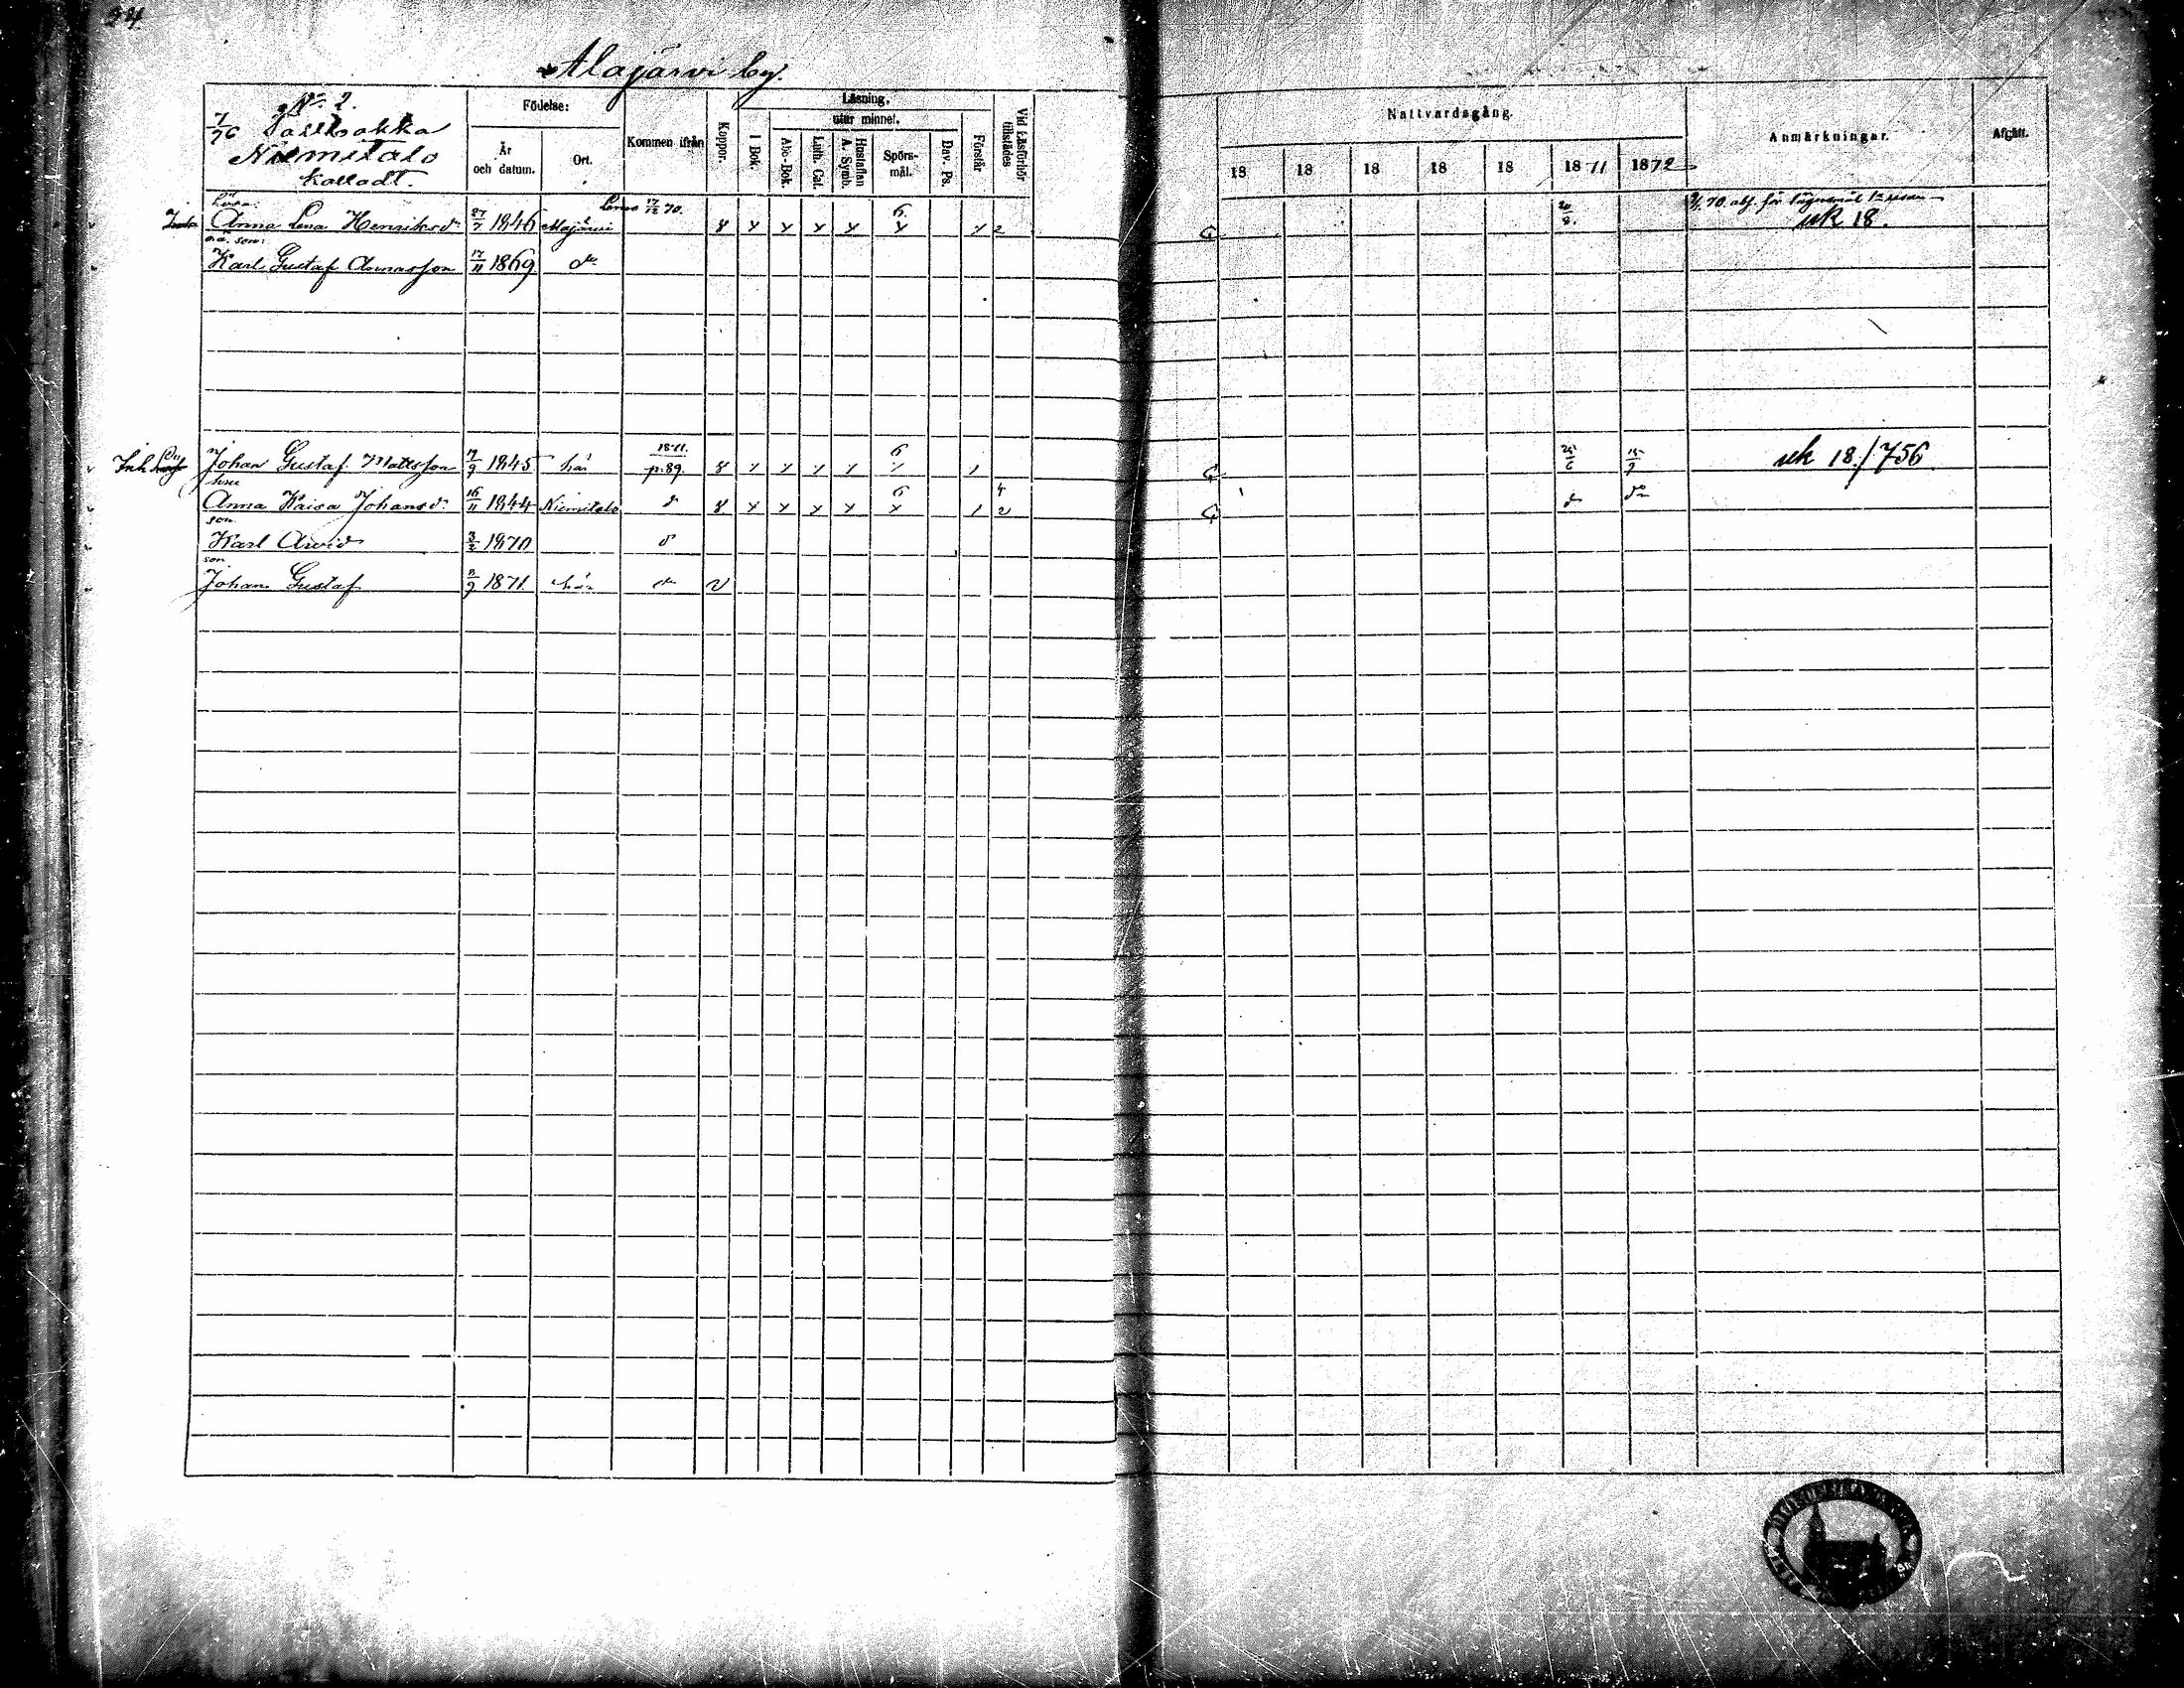 Alajärvi by.
No 2.
7/76
Niemitalo
kalladt.
Födelse:
År och datum.
Ort.
Kommen ifrån
Koppor.
Läsning,
I Bok.
utur minnet.
Abc-Bok.
Luth. Cat.
Hustaflan A. Symb.
Spörs-mål.
Dav. Ps.
Förstår
Vid Läsförhör tillstädes
Nattvardsgång.
18 18 18 18 18 1871 1872
Anmärkningar.
Afgått.
Lösa:
Anna Lena Henriksdr 27/7 1846 Alajärvi 17/12 70. 8 x x x x 6 x 1 2 20/8. uk 18.
o.ä. son:
Karl Gustaf Annasson 17/11 1869 do
Inh Johan Gustaf Mattsson 17/9 1845 här 1871. p.89. 8 6 1 25/6 15/9 uk 18./756
Anna Kaisa Johansdr 16/11 1844 Niemitalo d 8 x x x x 6 x 1 4 2 do do
son
Karl Arvid 3/2 1870 d
son
Johan Gustaf 1871 här do v